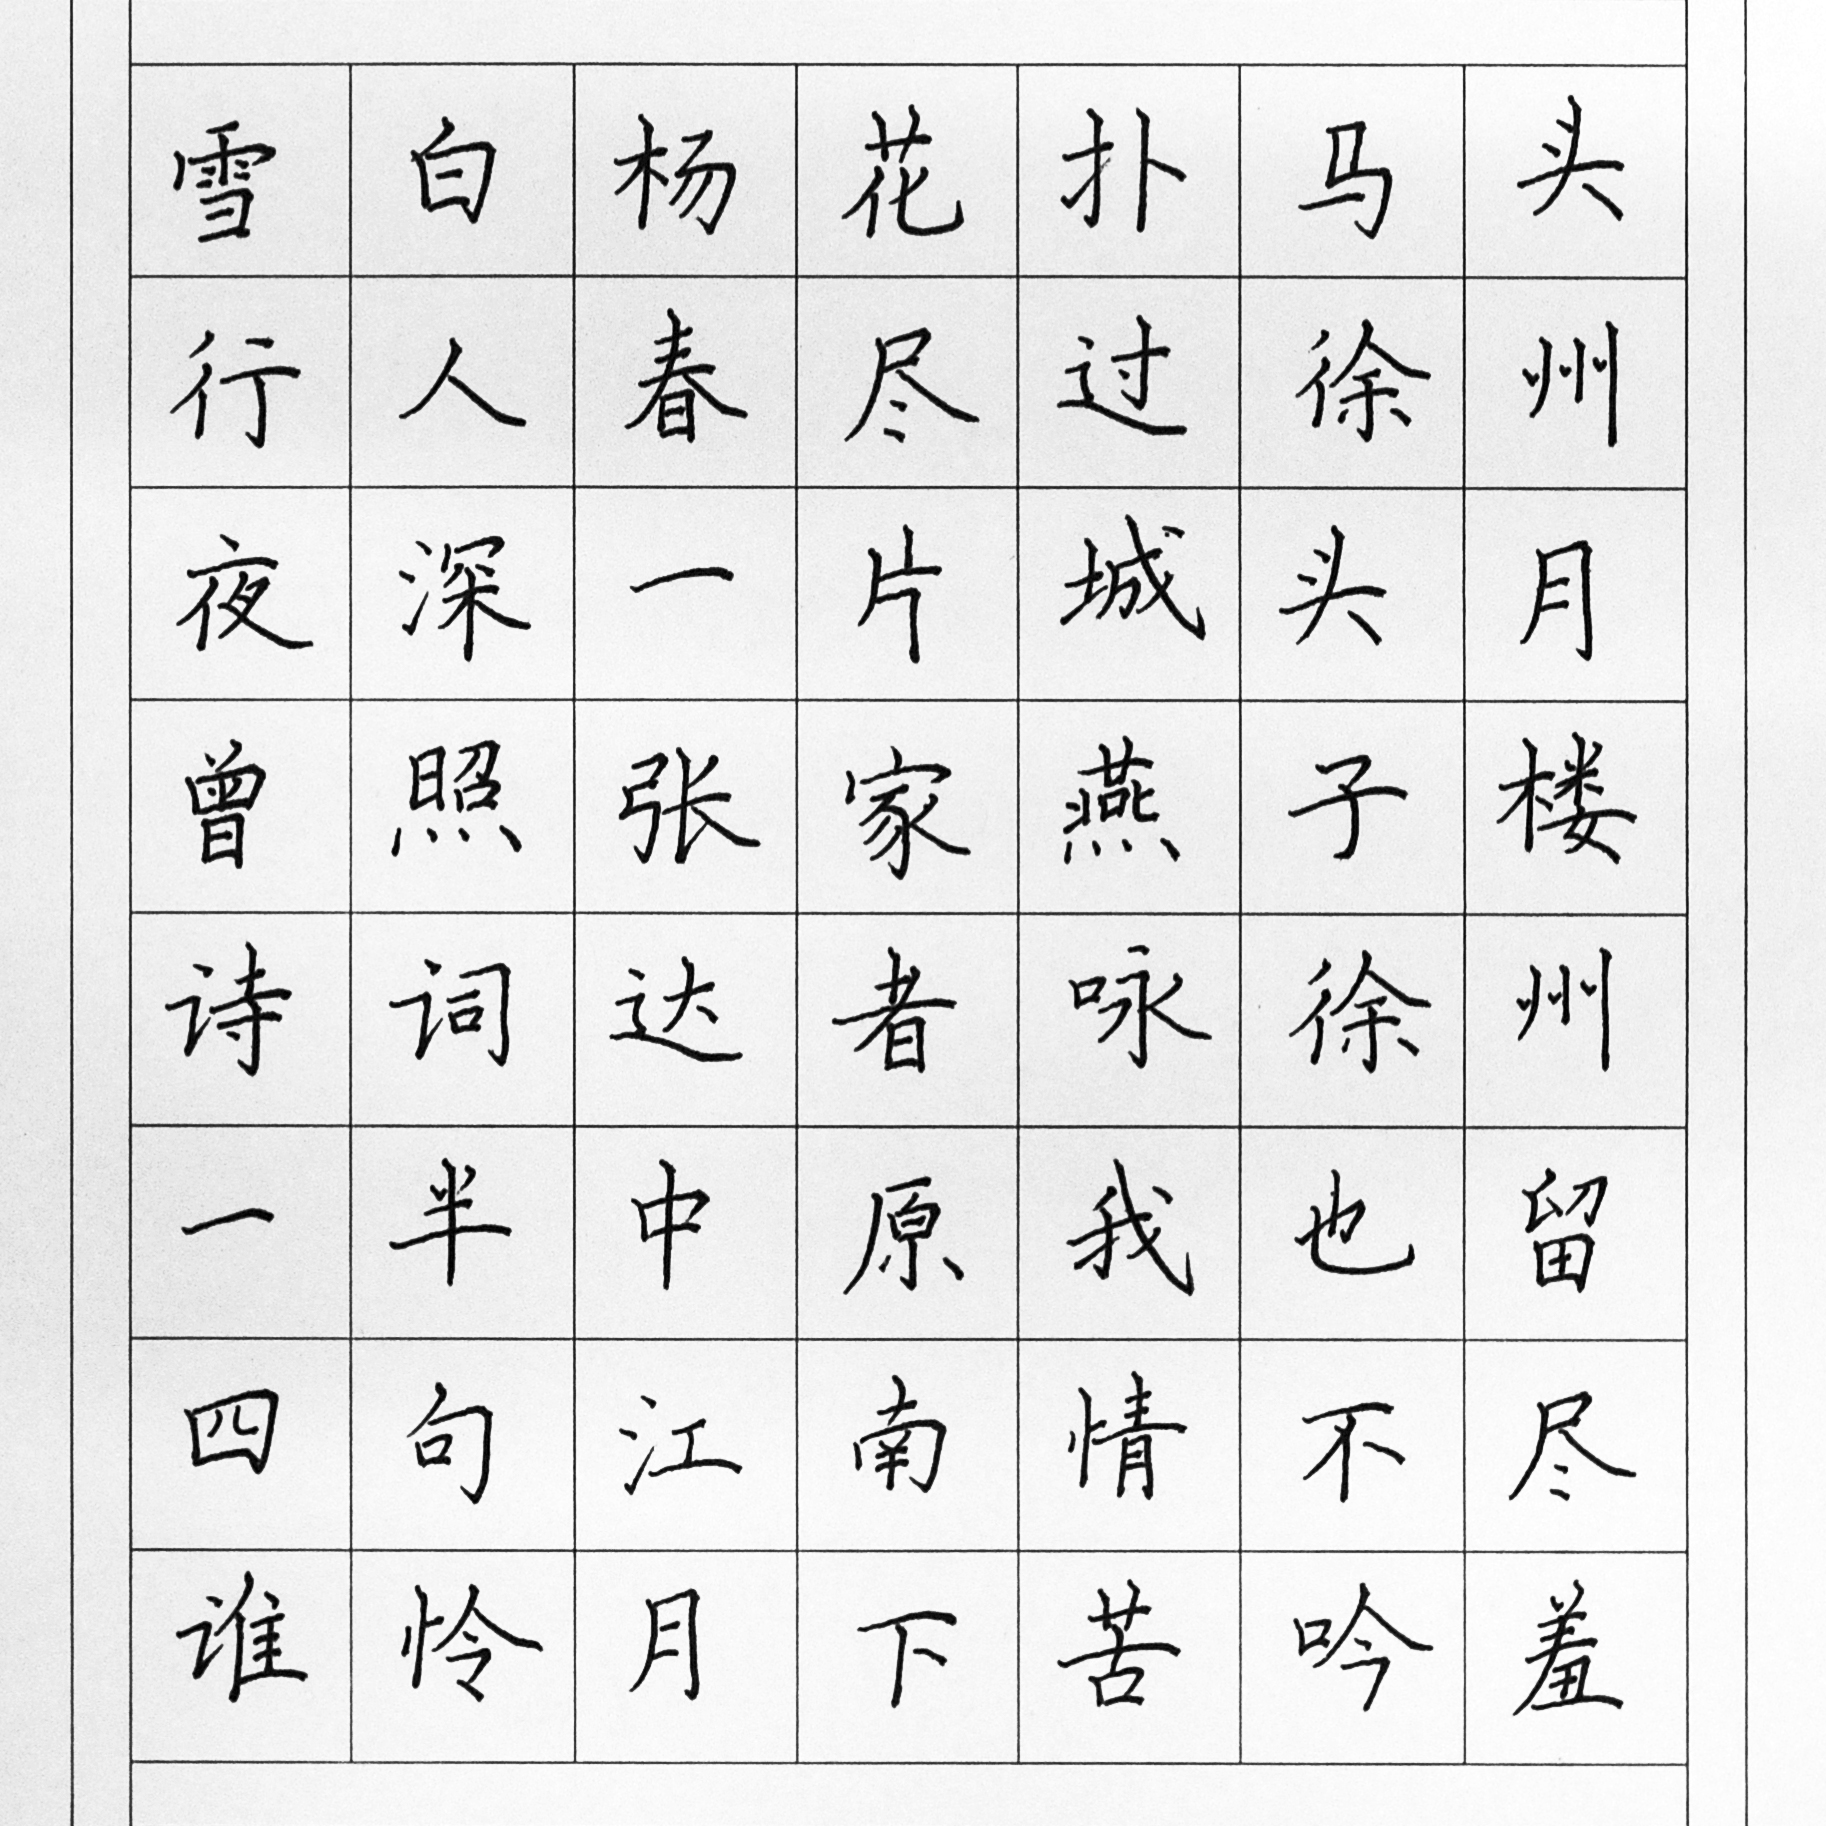 雪白杨花扑马头
行人春尽过徐州
夜深一片城头月
曾照张家燕子楼
诗词达者咏徐州
一半中原我也留
四句江南情不尽
谁怜月下苦吟羞